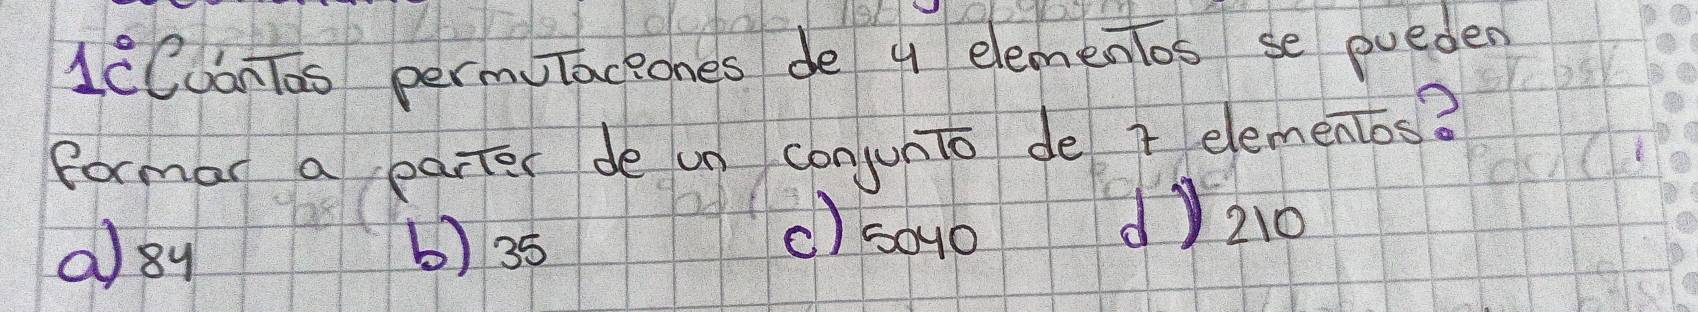 1¿Cuántas permutaciones de 4 elementos se pueden
formar a partir de un conjunto de 7 elementos?
a) 84 b) 35 c) 5040 d) 210